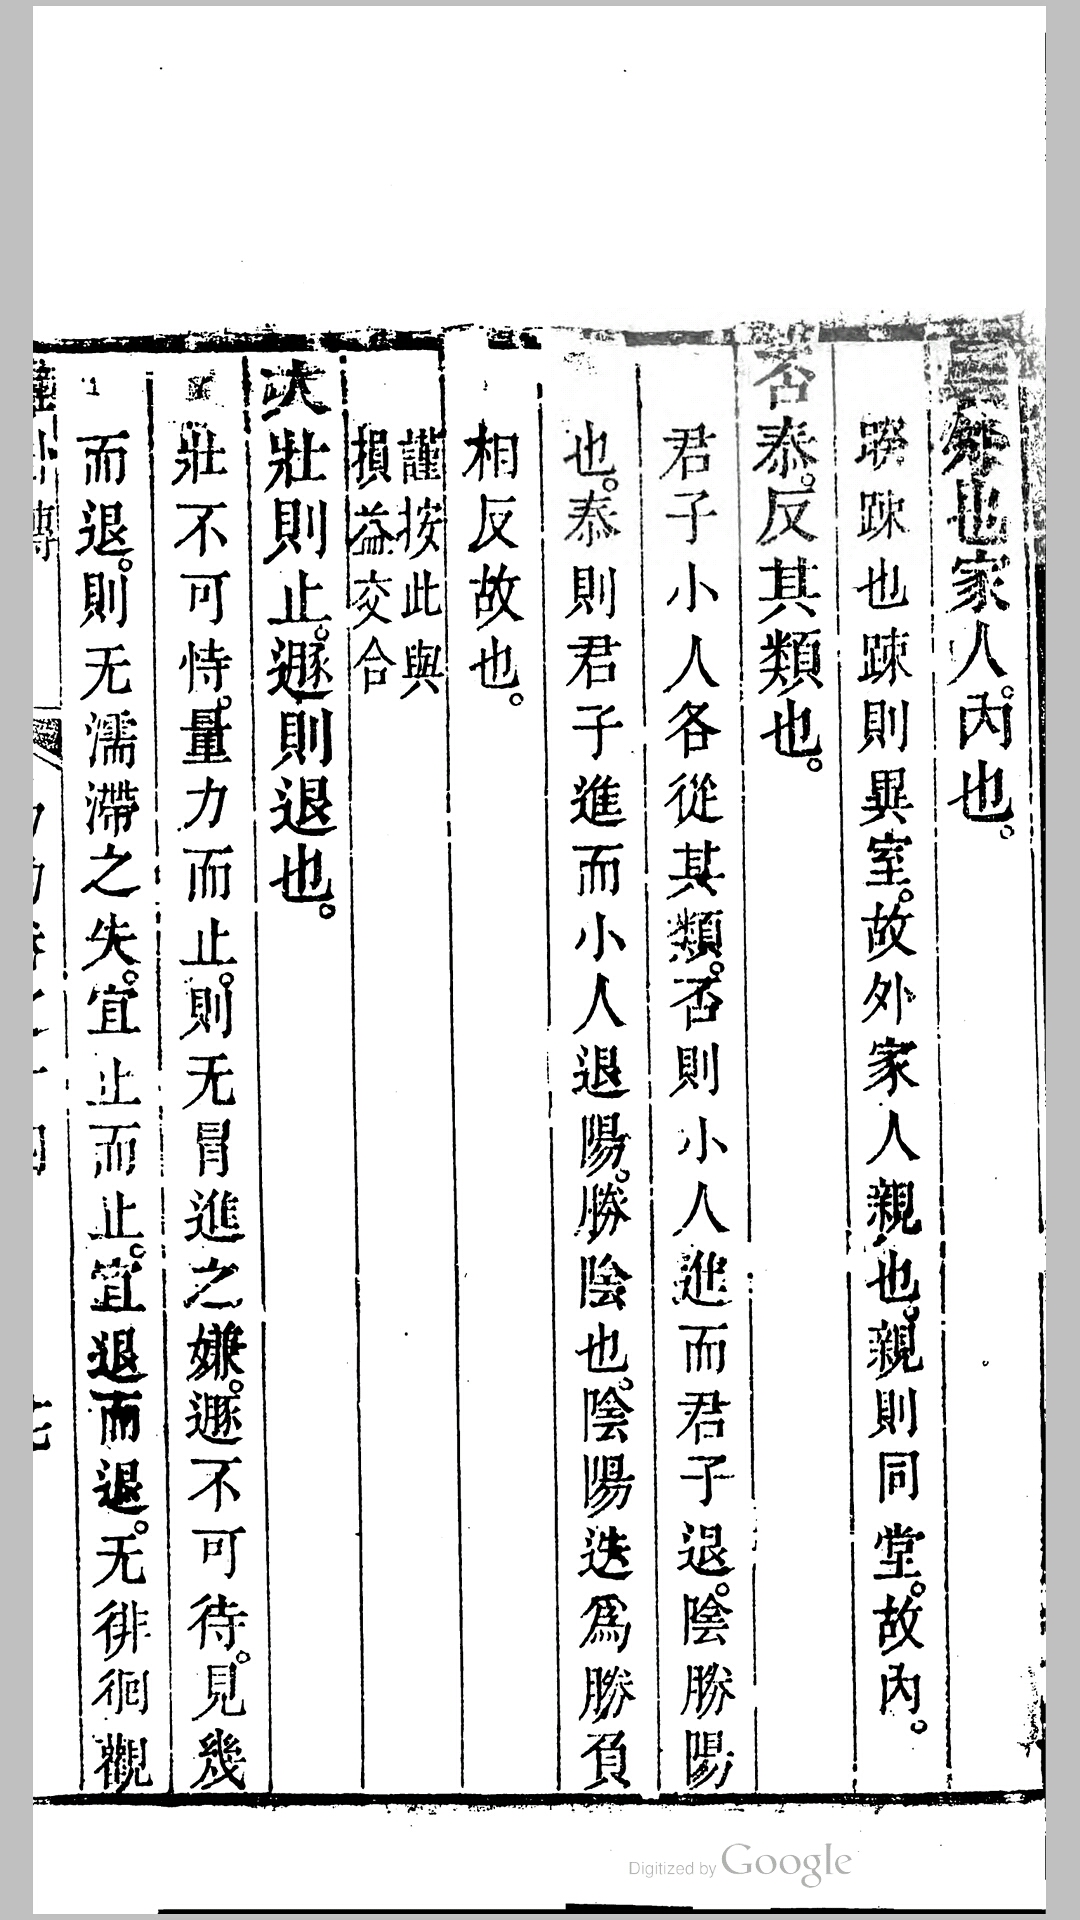 外也家人。內也。
睽踈也踈則異室。故外家人親也。親則同堂。故內。
否泰。反其類也。
君子小人各從其類。否則小人進而君子退。陰勝陽
也。泰則君子進而小人退陽。勝陰也。陰陽迭爲勝負
相反故也。
謹按此與
損益交合
大壯則止。遯則退也。
壯不可恃。量力而止。則无冐進之嫌。遯不可待。見幾
而退。則无濡滯之失。宜止而止。宜退而退。无徘徊觀
卦傳
Digitized by Google